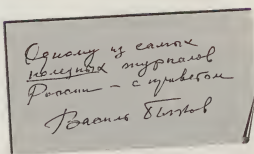 Одному из самых
полезных журналов
России – с приветом
Василь Быков